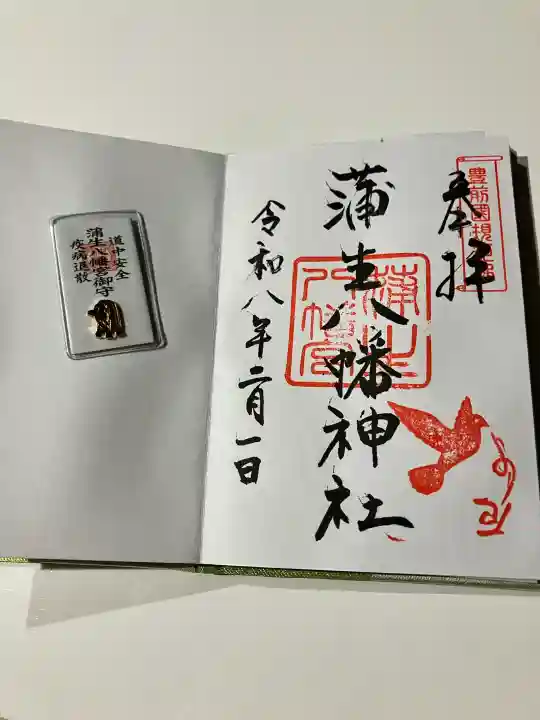 奉拝
蒲生八幡神社
令和八年二月一日
蒲生八幡宮
道中安全
蒲生八幡宮御守
疫病退散